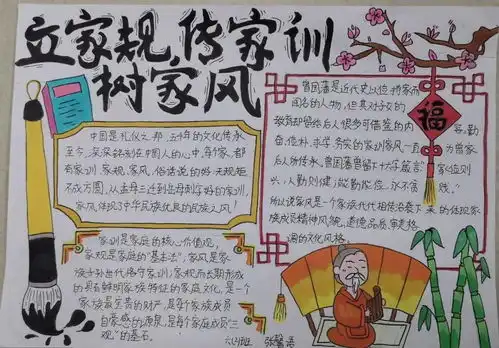 立家规,传家训
树家风
中国是礼仪之邦,五千年的文化传承
至今,深深铭刻在中国人的心中,每个家,都
有家训、家规、家风,俗话说的好:无规矩
不成方圆,从孟母三迁到岳母刺字,好的家训,
家风体现了中华民族优良的民族之风!
家训是家庭的核心价值观,
家规是家庭的"基本法",家风是家
族子孙世代恪守家训,家规而长期形成
的具有鲜明家族特征的家庭文化,是一个
家族最宝贵的财产,是每个家族成员
自豪感的源泉,是每个家庭成员"三
观"的基石。
曾国藩是近代史以位将家而
闻名的人物,但其对子女的
教育却留给后人很多可借鉴的内
容,勤
奋、俭朴、求学、务实的家训家风一直
为曾家
后人所传承,曾国藩曾留下十六字箴言
"家俭则
兴,人勤则健;能勤能俭,永不贫
贱。"
所以说家风是一个家族代代相传沿袭下
来的体现家
族成员精神风貌、道德品质、审美格
调的文化风格。
福
六(3)班 张馨语